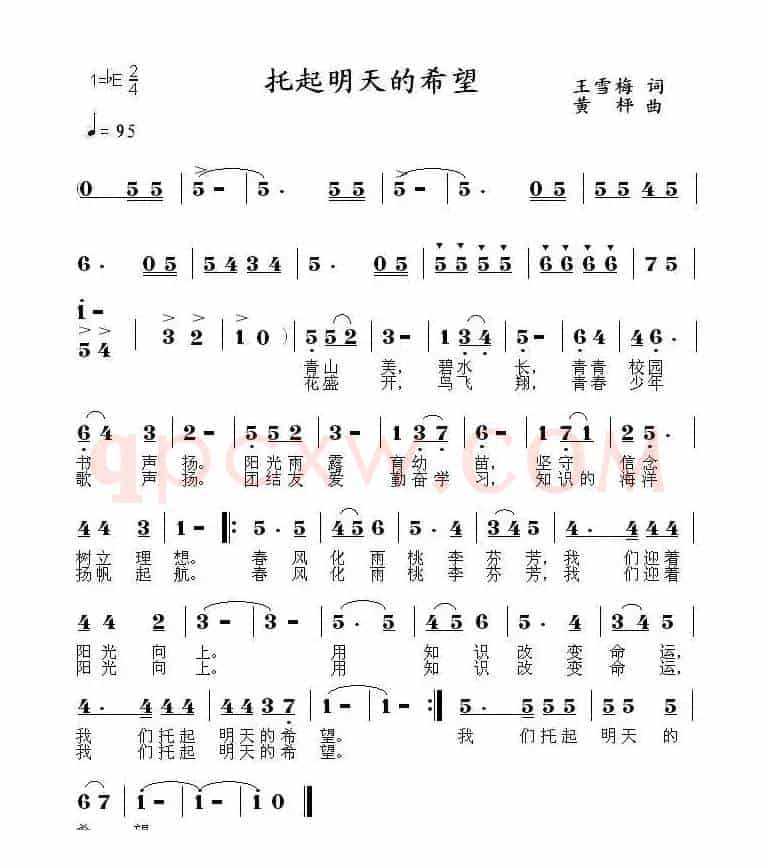 1=♭E 2/4 托起明天的希望 王雪梅 词
♩= 95 黄 枰 曲
(0 5 5 | 5 – | 5 · 5 5 | 5 – | 5 · 0 5 | 5 5 4 5 |
6 · 0 5 | 5 4 3 4 | 5 · 0 5 | 5 5 5 5 | 6 6 6 6 | 7 5 |
i –
5 4 | 3 2 | 1 0 ) | 5 5 2 | 3 – | 1 3 4 | 5 – | 6 4 | 4 6 · |
青山 美, 碧水 长, 青青 校园
花盛 开, 鸟飞 翔, 青春 少年
6 4 3 | 2 – | 5 5 2 | 3 – | 1 3 7 | 6 – | 1 7 1 | 2 5 · |
书 声 扬。 阳光雨 露 育幼 苗, 坚守 信念
歌 声 扬。 团结友 爱 勤奋学 习, 知识的 海洋
qpcxw.com
4 4 3 | 1 – |: 5 · 5 | 4 5 6 | 5 · 5 | 3 4 5 | 4 · 4 4 4 |
树立 理 想。 春 风 化 雨 桃 李 芬 芳, 我 们迎着
扬帆 起 航。 春 风 化 雨 桃 李 芬 芳, 我 们迎着
4 4 2 | 3 – | 3 – | 5 · 5 | 4 5 6 | 5 · 4 | 3 4 5 |
阳 光 向 上。 用 知 识 改 变 命 运,
阳 光 向 上。 用 知 识 改 变 命 运,
4 · 4 4 4 | 4 4 3 7 | 1 – | 1 – :| 5 · 5 5 5 | 5 5 5 |
我 们托起 明天的希 望。 我 们托起 明天 的
我 们托起 明天的希 望。
6 7 | i – | i – | i 0 |
希 望